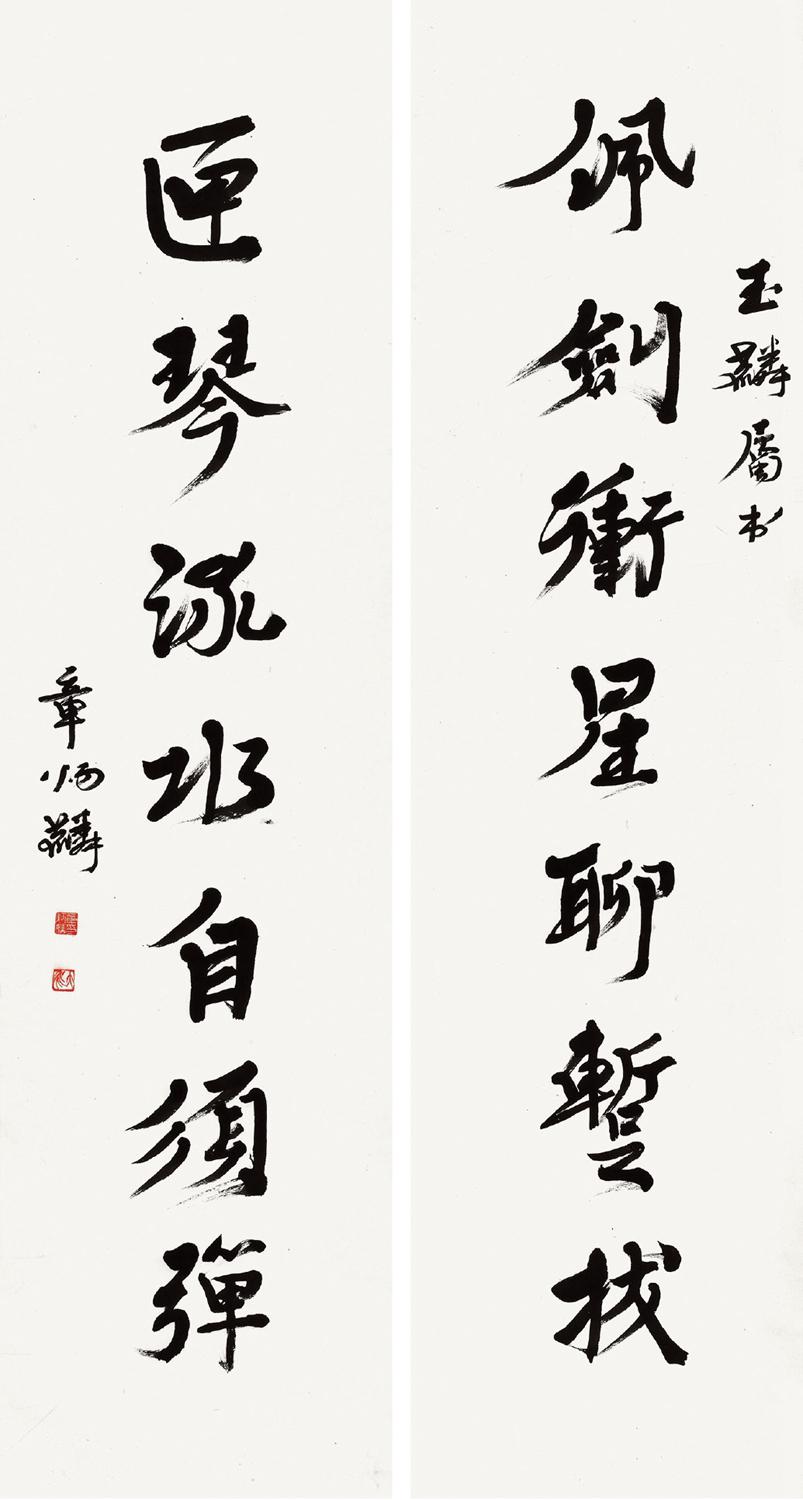 玉麟属书
佩劍衝星聊暫拔
匣琴流水自須彈
章炳麟